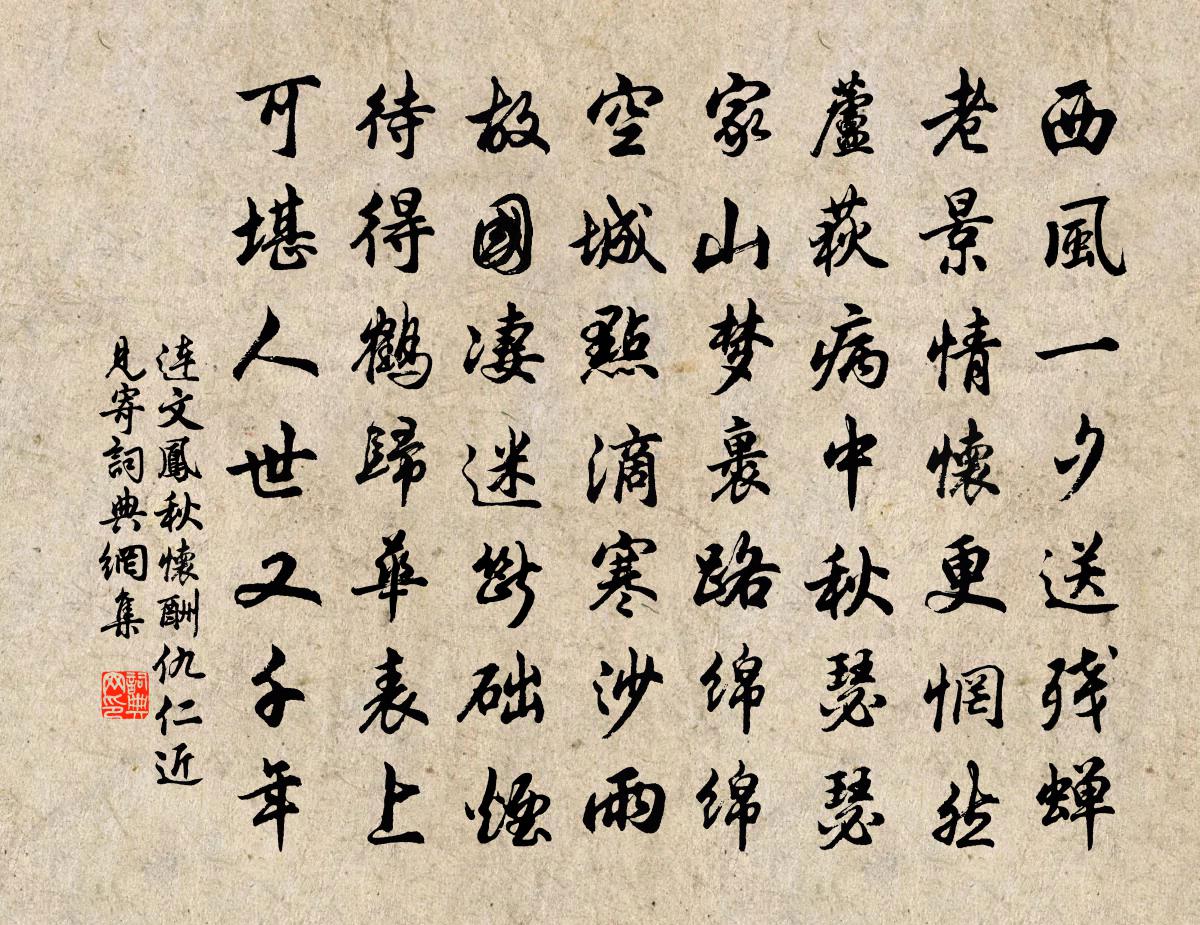 西風一夕送残蝉
老景情懷更惘然
蘆荻病中秋瑟瑟
家山梦裏路绵绵
空城點滴寒沙雨
故國凄迷斷础煙
待得鶴歸華表上
可堪人世又千年
連文鳳秋懷酬仇仁近
見寄詞典網集
詞典
网印